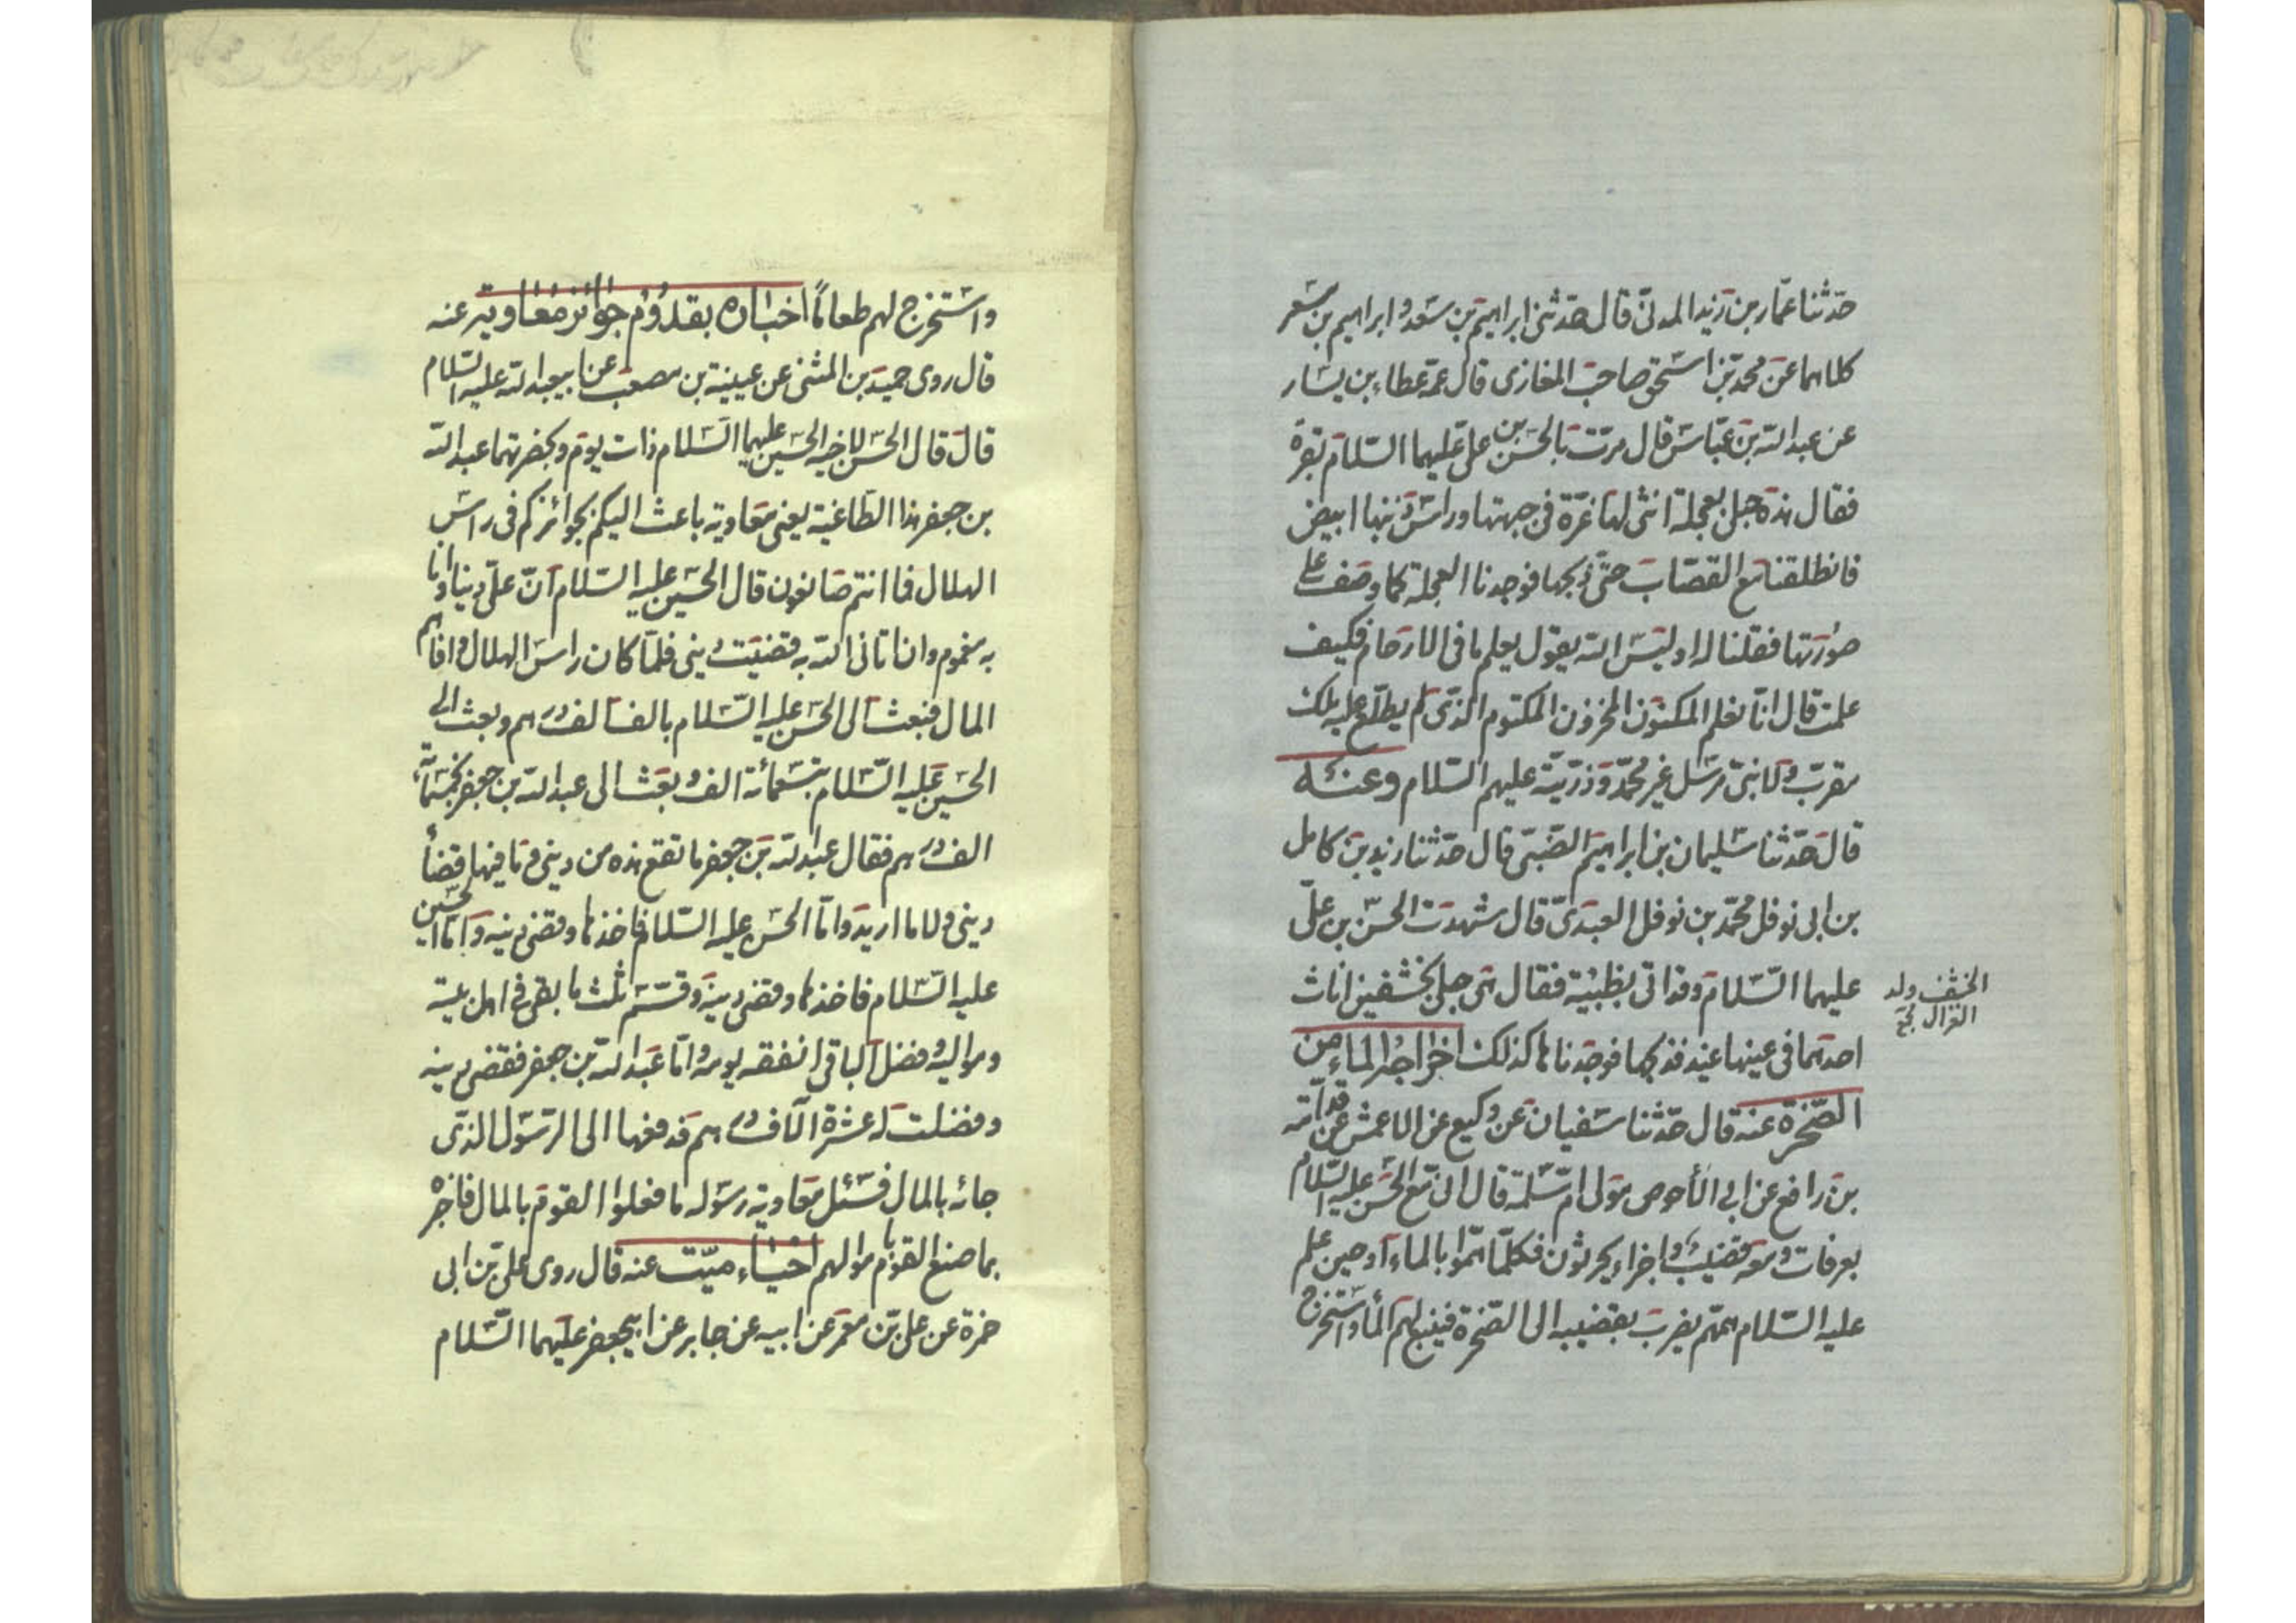 حدثنا عمار بن زيد المدنى قال حدثنى ابراهيم بن سعد و ابراهيم بن مسعر
كلاهما عن محمد بن اسحق صاحب المغازى قال عمه عطاء بن يسار
عن عبد الله بن عباس قال مرت بالحسن بن على عليهما السلام بقرة
فقال هذه حبلى بعجلة انثى لها غرة فى جبهتها وراس ذنبها ابيض
فانطلقنا مع القصاب حتى ذبحها فوجدنا العجلة كما وصف على
صورتها فقلنا له اوليس الله يقول يعلم ما فى الارحام فكيف
علمت قال انا نعلم المكنون المخزون المكتوم الذى لم يطلع عليه ملك
مقرب ولا نبى مرسل غير محمد و ذريته عليهم السلام وعنه
قال حدثنا سليمان بن ابراهيم الضبى قال حدثنا زيد بن كامل
بن ابى نوفل محمد بن نوفل العبدى قال شهدت الحسن بن على
عليهما السلام وقد اتى بظبية فقال هى حبلى بخشفين اناث
احدتهما فى عينها عيد فذبحها فوجدناها كذلك اخراجه الماء من
الصخرة عنه قال حدثنا سفيان عن وكيع عن الاعمش عن قدامة
بن رافع عن ابى الأحوص مولى ام سلمة قال انى مع الحسن عليه السلام
بعرفات ومعه قضيب و اجراء يحرثون فكلما هموا بالماء
عليه السلام يضرب بقضيبه الى الصخرة فينبع لهم الماء واستخرج
الخشف ولد
الغزال
واستخرج لهم طعاماً اخباره بقدوم جوائز معاوية عنه
قال روى حميد بن المثنى عن عيينة بن مصعب عن ابيعبد الله عليه السلام
قال قال الحسن لاخيه الحسين عليهما السلام ذات يوم وبحضرتهما عبد الله
بن جعفر هذا الطاغية يعنى معاوية باعث اليكم بجوائزكم فى راس
الهلال فما انتم صانعون قال الحسين عليه السلام ان على دينا وانا
به مغموم وان اتانى الله به قضيت دينى فلما كان راس الهلال وافاهم
المال فبعث الى الحسن عليه السلام بالف الف درهم وبعث الى
الحسين عليه السلام بتسعمائة الف وبعث الى عبد الله بن جعفر بخمسمائة
الف درهم فقال عبد الله بن جعفر ما تقع هذه من دينى وما فيها قضأ
دينى ولا ما اريد واما الحسن عليه السلام فاخذها وقضى دينه واما الحسين
عليه السلام فاخذها وقضى دينه وقسم ثلث ما بقى فى اهل بيته
ومواليه وفضل الباقى انفقه يومه واما عبد الله بن جعفر فقضى دينه
وفضلت له عشرة الآف درهم فدفعها الى الرسول الذى
جائه بالمال فسئل معاوية رسوله ما فعلوا القوم بالمال فاخبره
بما صنع القوم باموالهم احياء ميت عنه قال روى على بن ابى
حمزة عن على بن معمر عن ابيه عن جابر عن ابيجعفر عليهما السلام